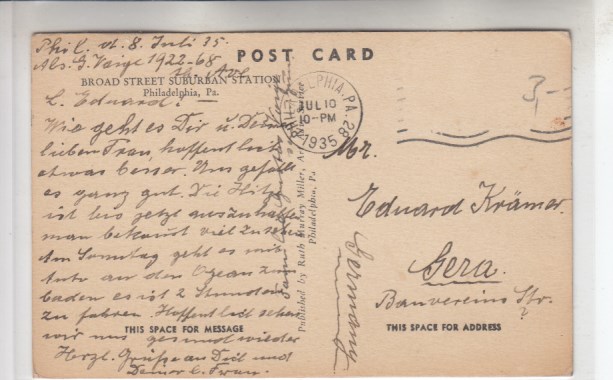 Phil. d. 8. Juli 35.
Abs. G. 1922-68
Ave
POST CARD
BROAD STREET SUBURBAN STATION
Philadelphia, Pa.
L. Eduard!
Wie geht es Dir u. Deiner
lieben Frau, hoffentlich
etwas besser. Uns gefällt
es ganz gut. Die Hitze
ist bis jetzt auszuhalten
man bekommt viel zu sehen
Am Sonntag geht es mit
Auto an den Ozean zum
baden es ist 2 Stunden
zu fahren. Hoffentlich sehen
wir uns gesund wieder
THIS SPACE FOR MESSAGE
Herzl. Grüße an Dich und
Deiner l. Frau.
Published by Ruth Murray Miller,
Philadelphia, Pa
PHILADELPHIA, PA.
JUL 10
10-PM
1935
3,-
Mr.
Eduard Krämer.
Gera.
Bauvereins Str.
?
Germany
THIS SPACE FOR ADDRESS